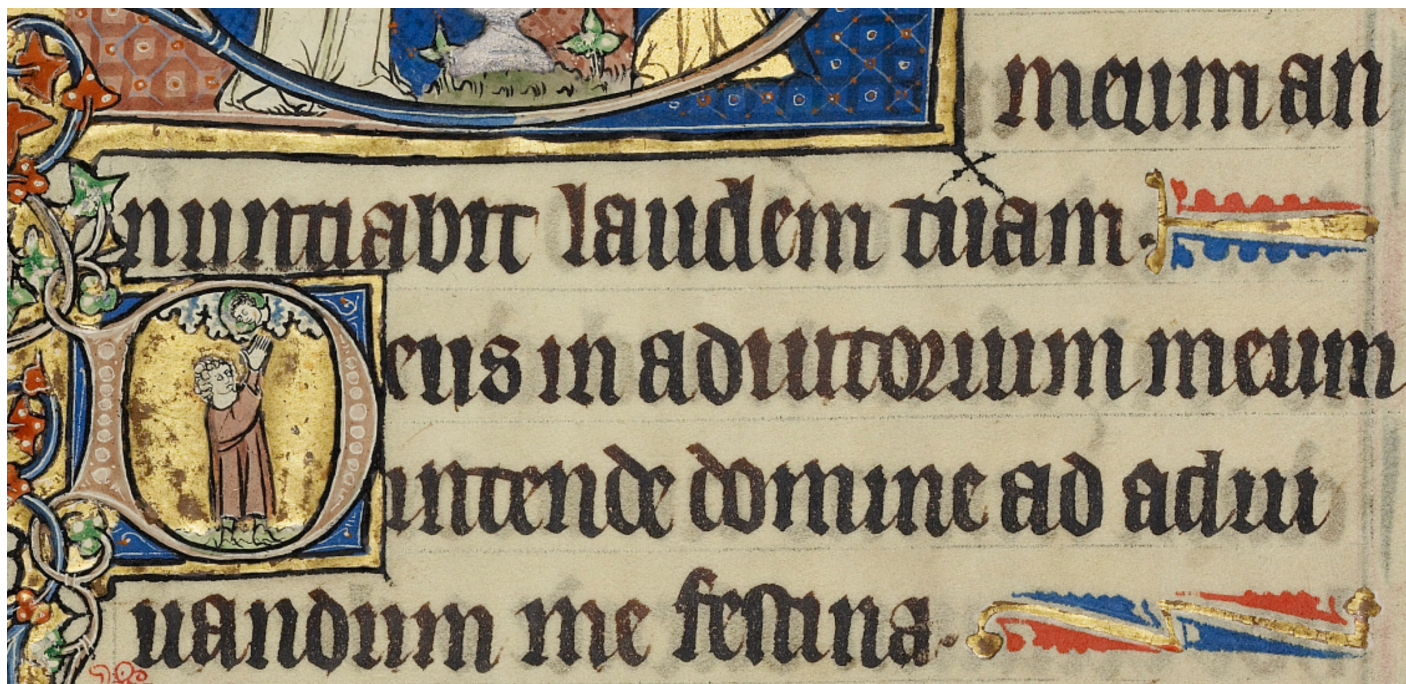 meum an
nuntiabit laudem tuam.
Deus in adiutorium meum
intende domine ad adiu
uandum me festina.